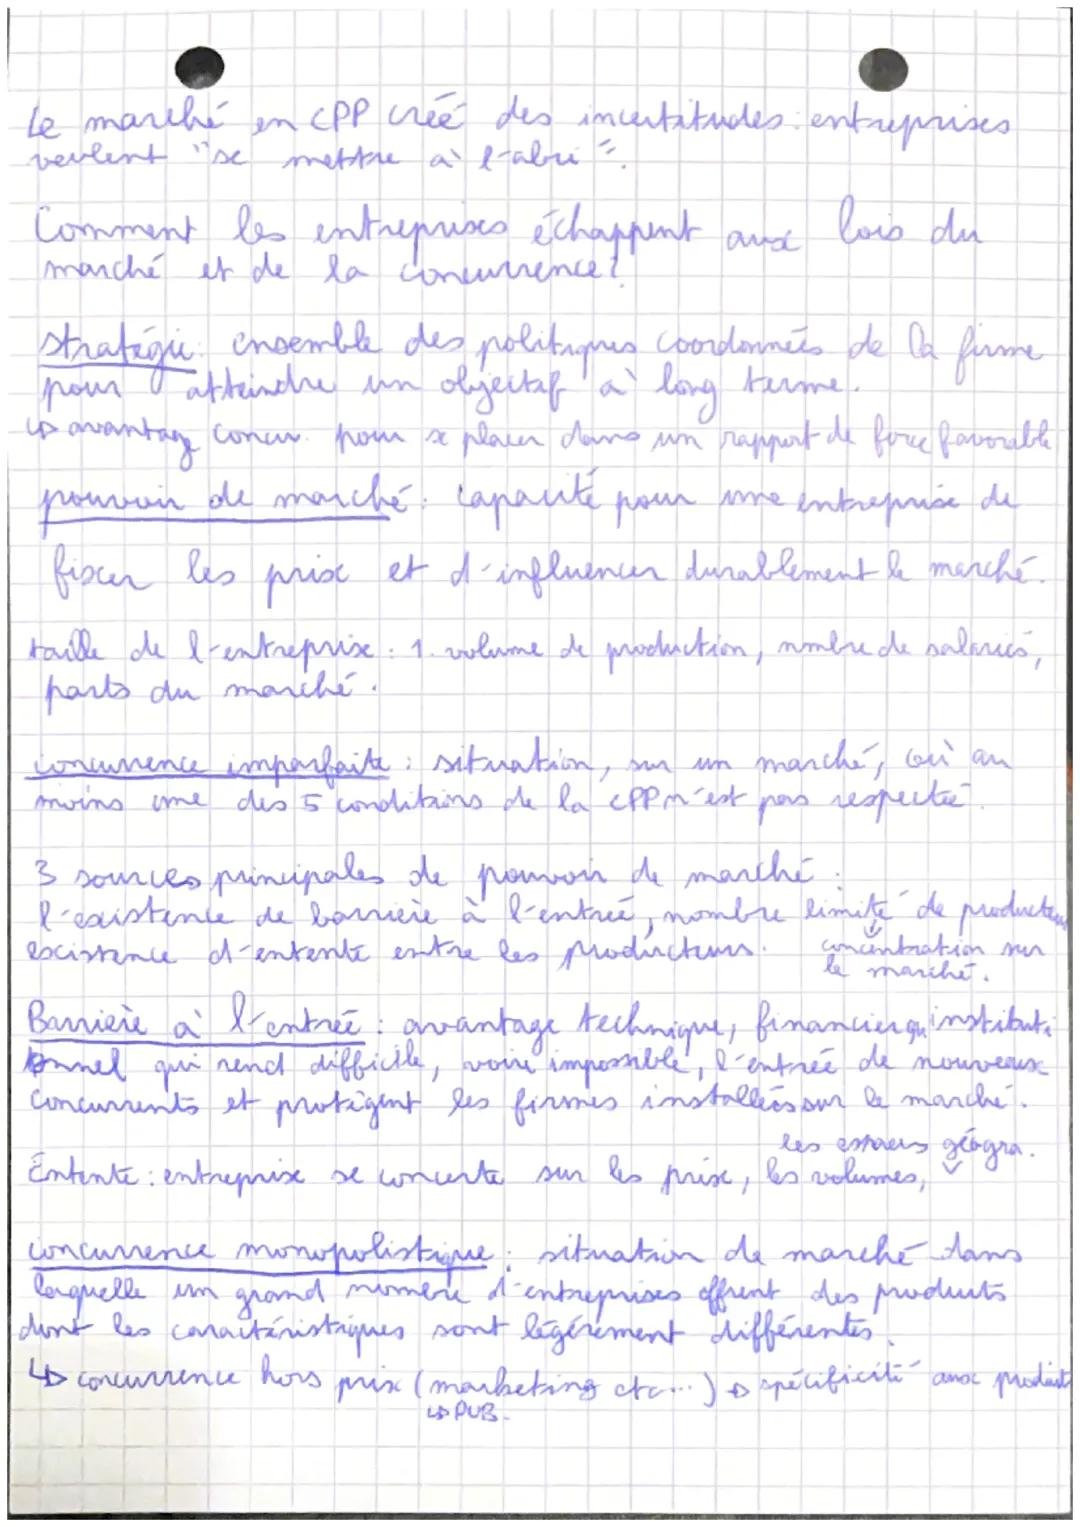 Le marché en CPP créé des incertitudes : entreprises
veulent "se mettre à l'abri".
Comment les entreprises échappent aux lois du
marché et de la concurrence ?
stratégie : ensemble des politiques coordonnées de la firme
pour atteindre un objectif à long terme.
↳ avantag concu. pour se placer dans un rapport de force favorable
pouvoir de marché : capacité pour une entreprise de
fixer les prix et d'influencer durablement le marché.
taille de l'entreprise : 1. volume de production, nmbre de salariés,
parts du marché.
concurrence imparfaite : situation, sur un marché, où au
moins une des 5 conditions de la CPP n'est pas respectée.
3 sources principales de pouvoir de marché :
l'existence de barrière à l'entrée, nombre limité de producteurs
existence d'entente entre les producteurs. concentration sur
le marché.
Barrière à l'entrée : avantage technique, financier instituti
onnel qui rend difficile, voire impossible, l'entrée de nouveaux
concurrents et protègent les firmes installées sur le marché.
les espaces géogra.
Entente : entreprise se concerte sur les prix, les volumes,
concurrence monopolistique : situation de marché dans
laquelle un grand nombre d'entreprises offrent des produits
dont les caractéristiques sont légèrement différentes.
↳ concurrence hors prix (marketing etc...) → spécificité aux produits
↳ PUB.